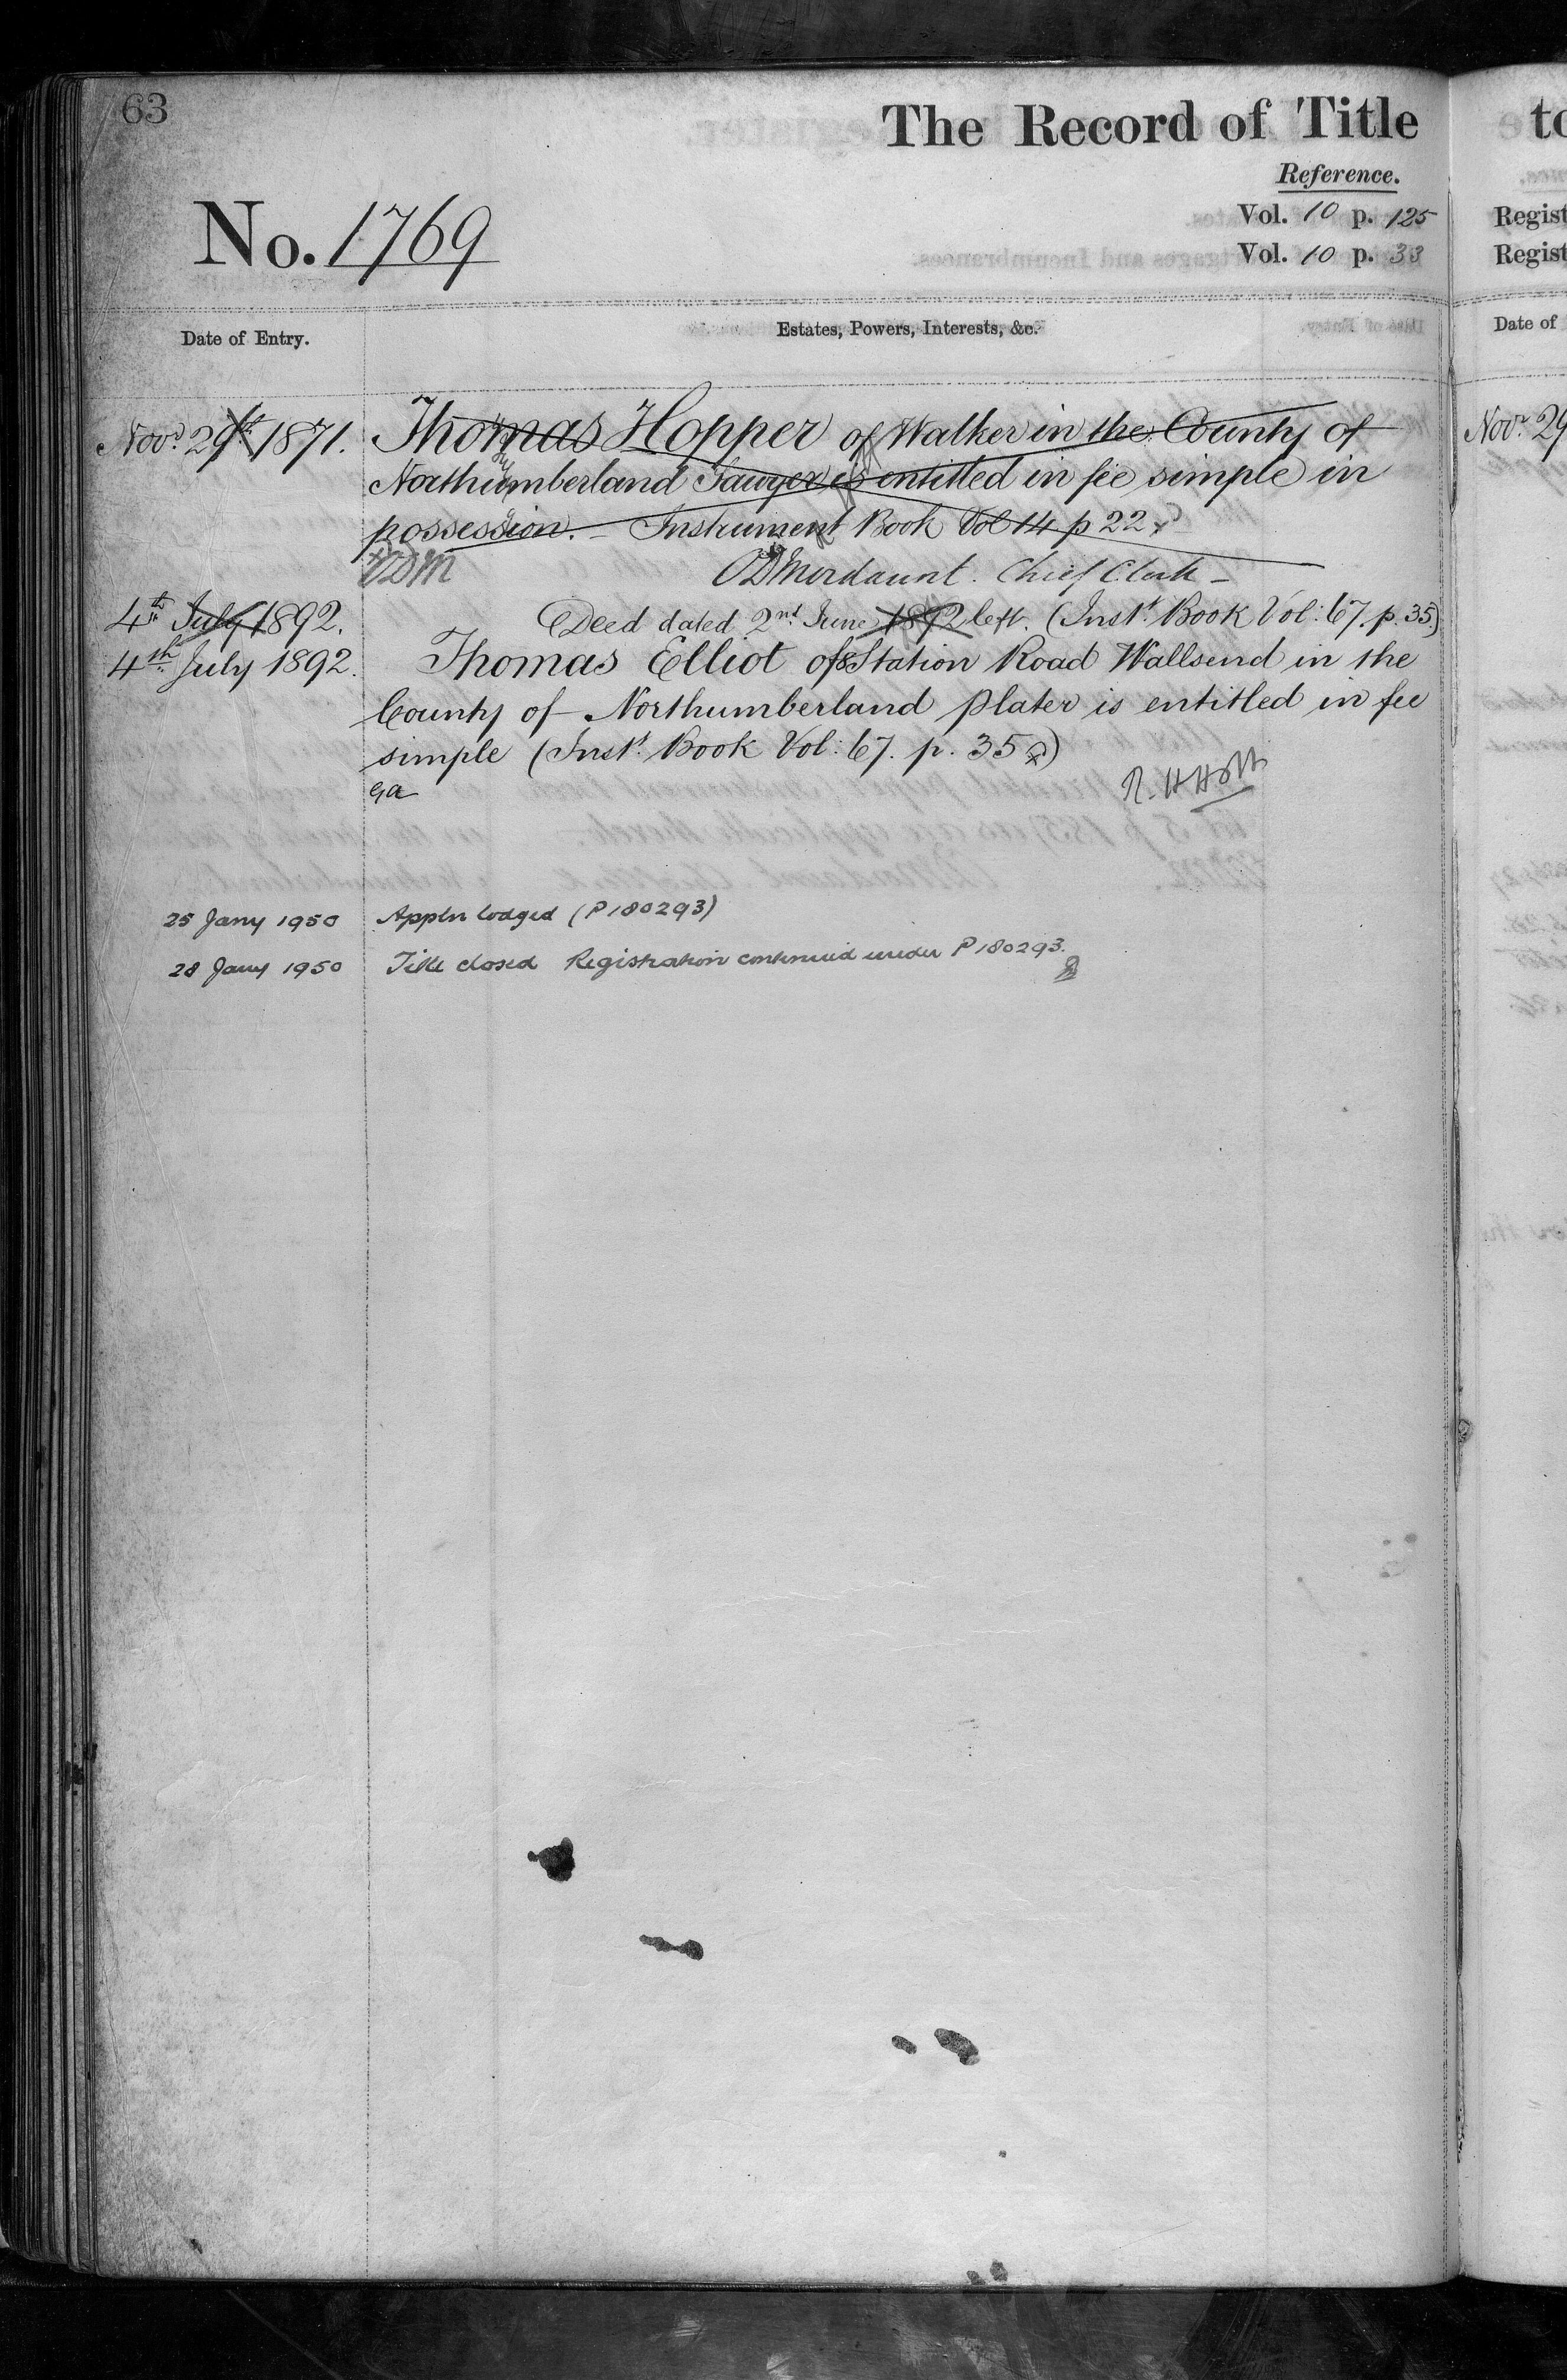 63
The Record of Title
Reference.
No. 1769
Vol. 10 p. 125
Vol. 10 p. 33
Date of Entry.
Estates, Powers, Interests, &c.
Novr. 29th 1871. Thomas Hopper of Walker in the County of
Northumberland Sawyer is entitled in fee simple in
possession. – Instrument Book Vol 14 p 22
ODM
Mordaunt. Chief Clerk –
4th July 1892. Deed dated 2nd June 1892 left. (Inst. Book Vol: 67. p. 35)
4th July 1892. Thomas Elliot of 8 Station Road Wallsend in the
County of Northumberland Plater is entitled in fee
simple (Inst. Book Vol: 67. p. 35)
R. H Holt
25 Jany 1950 Appln lodged (P180293)
28 Jany 1950 Title closed Registration continued under P180293.
to
Regist
Regist
Date of
Novr. 29